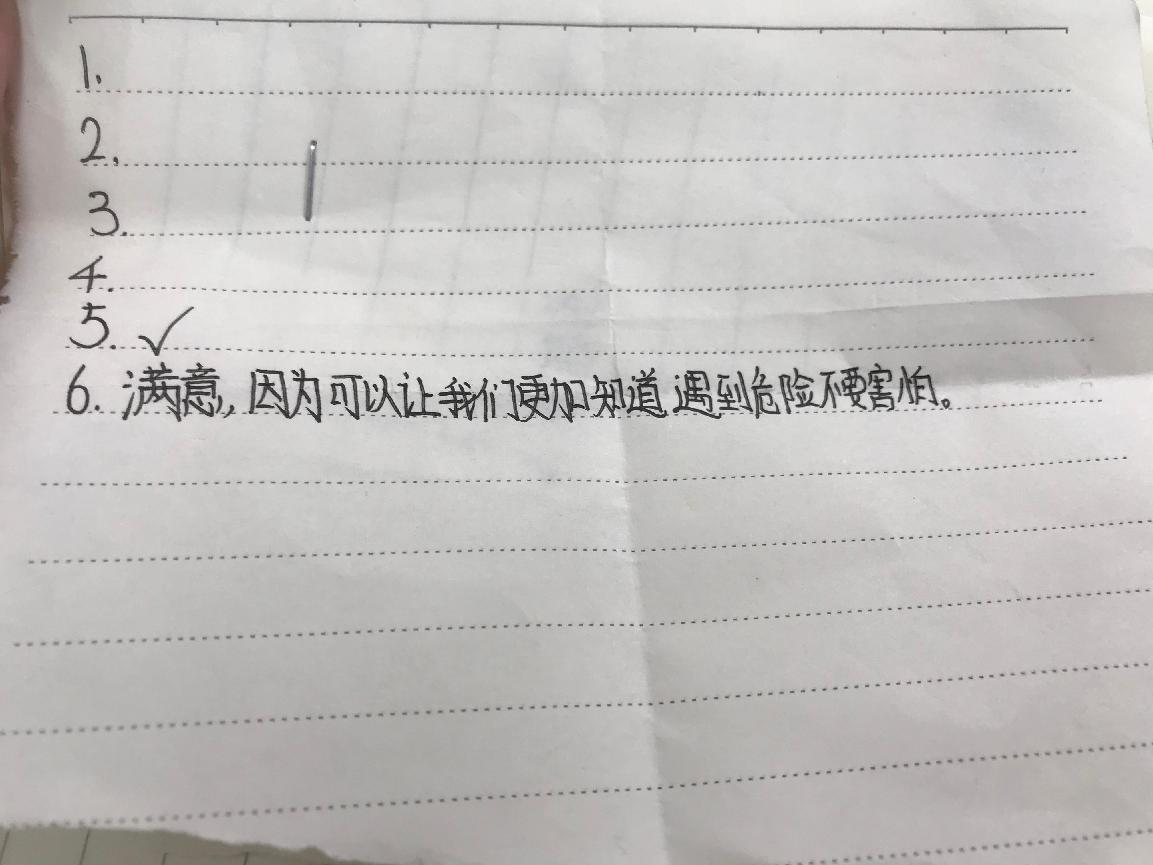 1.
2.
3.
4.
5. ✓
6. 满意,因为可以让我们更加知道遇到危险不要害怕。